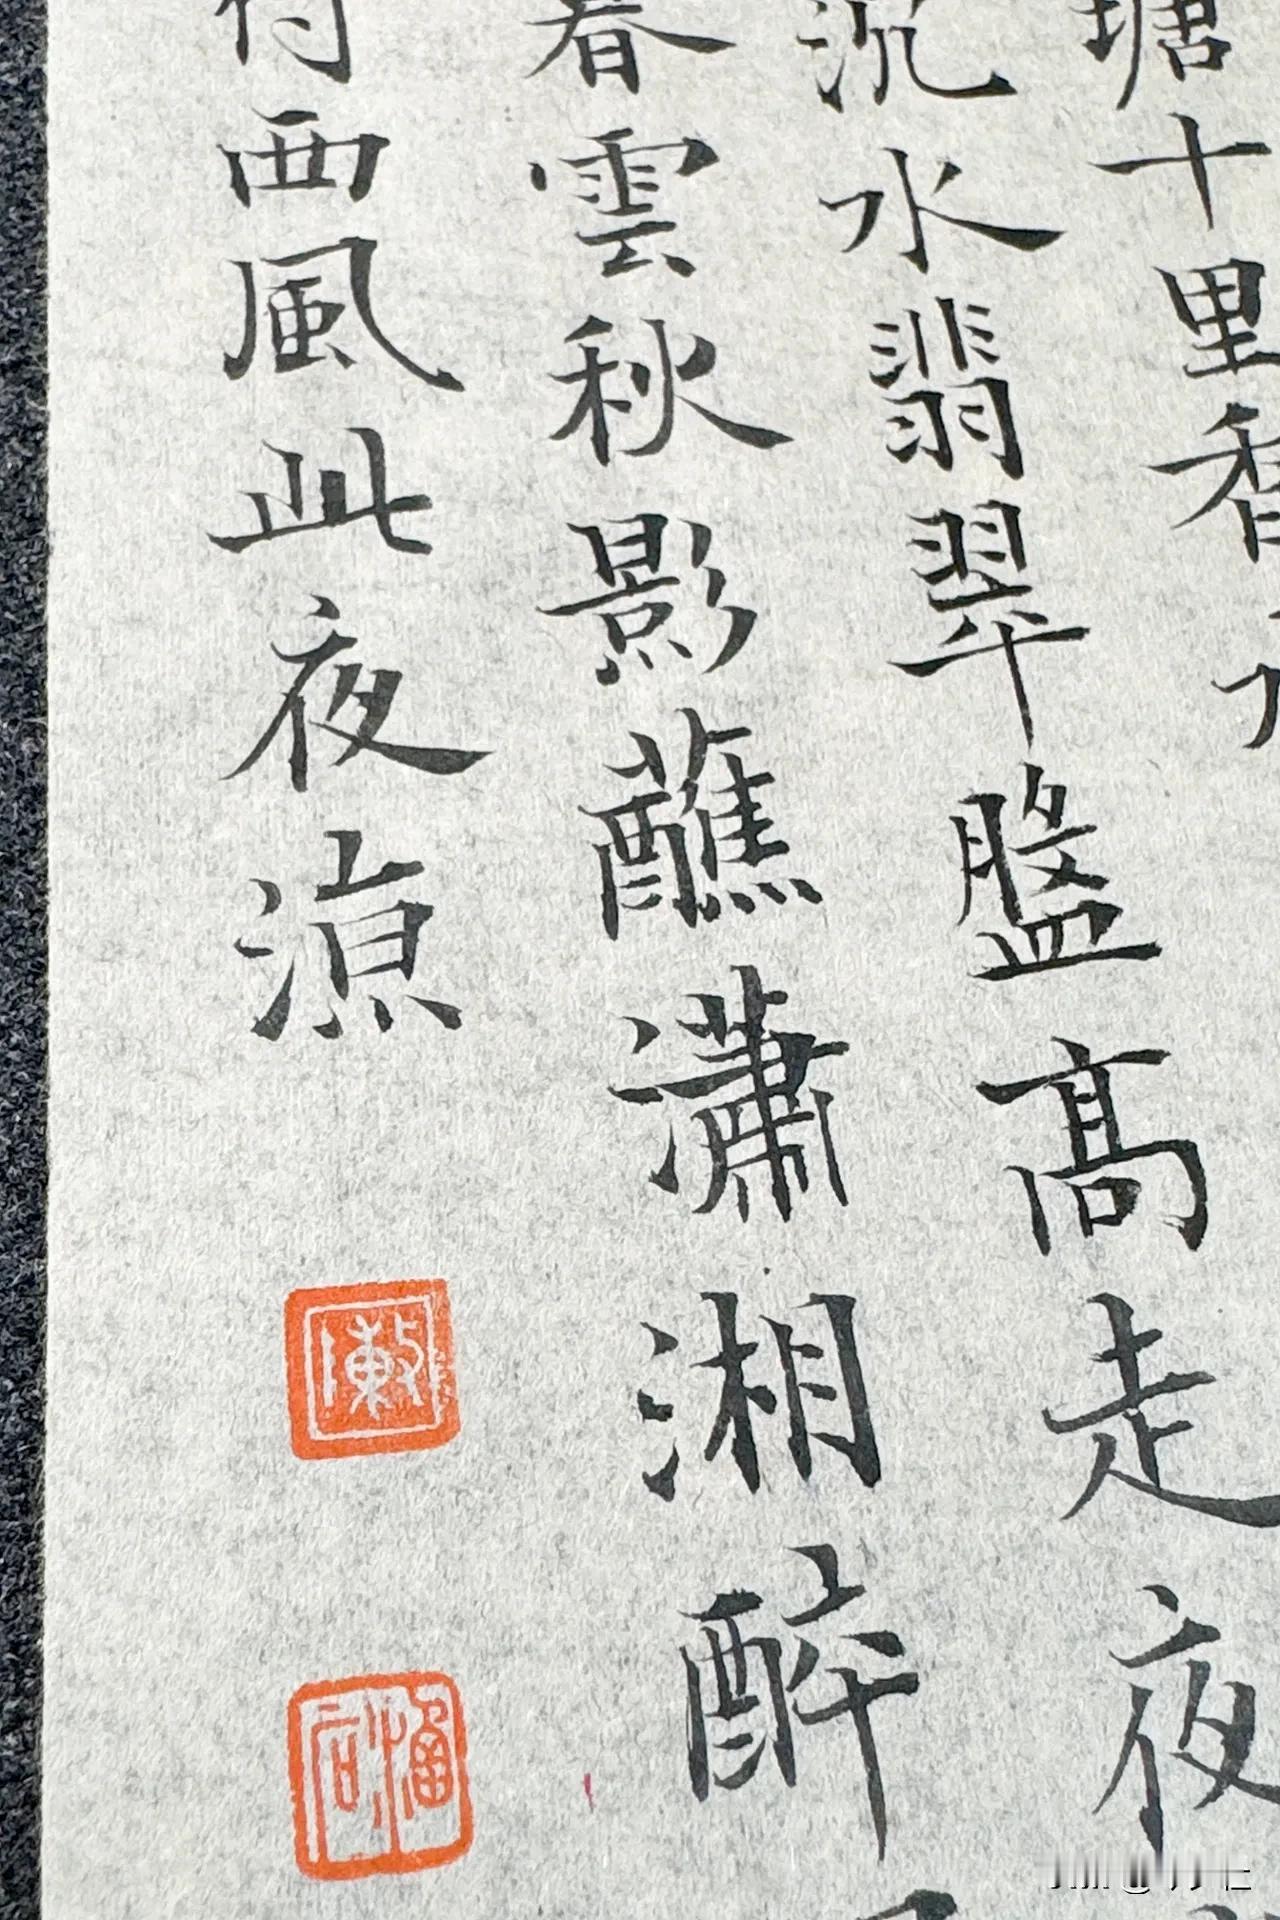 塘十里香
沉水翡翠盤高走夜
春雲秋影蘸瀟湘醉
待西風此夜涼